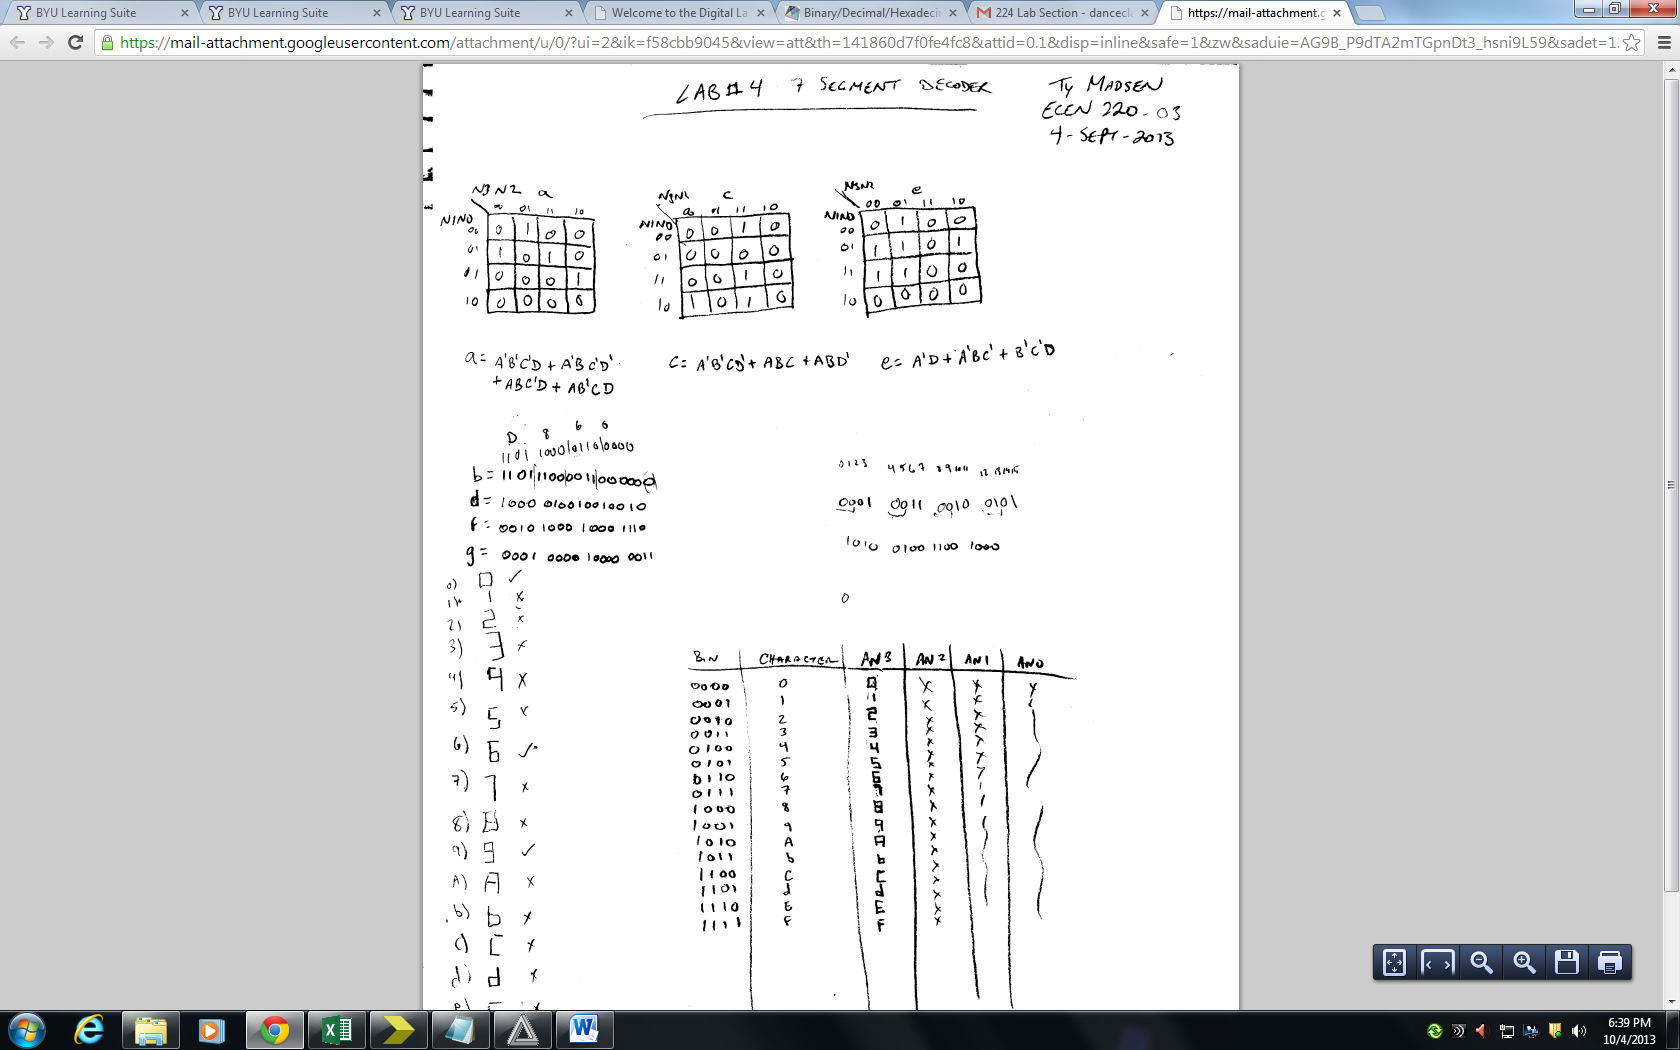 BYU Learning Suite
BYU Learning Suite
BYU Learning Suite
Welcome to the Digital La
Binary/Decimal/Hexadeci
224 Lab Section - dancecl
https://mail-attachment.g
https://mail-attachment.googleusercontent.com/attachment/u/0/?ui=2&ik=f58cbb9045&view=att&th=141860d7f0fe4fc8&attid=0.1&disp=inline&safe=1&zw&saduie=AG9B_P9dTA2mTGpnDt3_hsni9L59&sadet=1
LAB #4 7 SEGMENT DECODER
TY MADSEN
ECEN 220-03
4-SEPT-2013
N3N2 a
00 01 11 10
N1N0
00 0 1 0 0
01 1 0 1 0
11 0 0 0 1
10 0 0 0 0
N3N2 c
00 01 11 10
N1N0
00 0 0 1 0
01 0 0 0 0
11 0 0 1 0
10 1 0 1 0
N3N2 e
00 01 11 10
N1N0
00 0 1 0 0
01 1 1 0 1
11 1 1 0 0
10 0 0 0 0
a = A'B'C'D + A'BC'D'
+ ABC'D + AB'CD
c = A'B'CD' + ABC + ABD'
e = A'D + A'BC' + B'C'D
D 8 6 0
1101 1000 0110 0000
b =
d = 1000 0100 1001 0010
f = 0010 1000 1000 1110
g = 0001 0000 10000 0011
0123 4567 8 9 10 11 12 13 14 15
0001 0011 0010 0101
1010 0100 1100 1000
0
0) 0 ✓
1) 1 x
2) 2 x
3) 3 x
4) 4 x
5) 5 x
6) 6 ✓
7) 7 x
8) 8 x
9) 9 ✓
A) A x
b) b x
c) C x
d) d x
BIN CHARACTER AN3 AN2 AN1 AN0
0000 0 0 x x x
0001 1 1 x x
0010 2 2 x x
0011 3 3 x x
0100 4 4 x x
0101 5 5 x
0110 6 6 x
0111 7 7 x
1000 8 8 x
1001 9 9 x
1010 A A x
1011 b b x
1100 C C x
1101 d d x
1110 E E x
1111 F F x
6:39 PM
10/4/2013